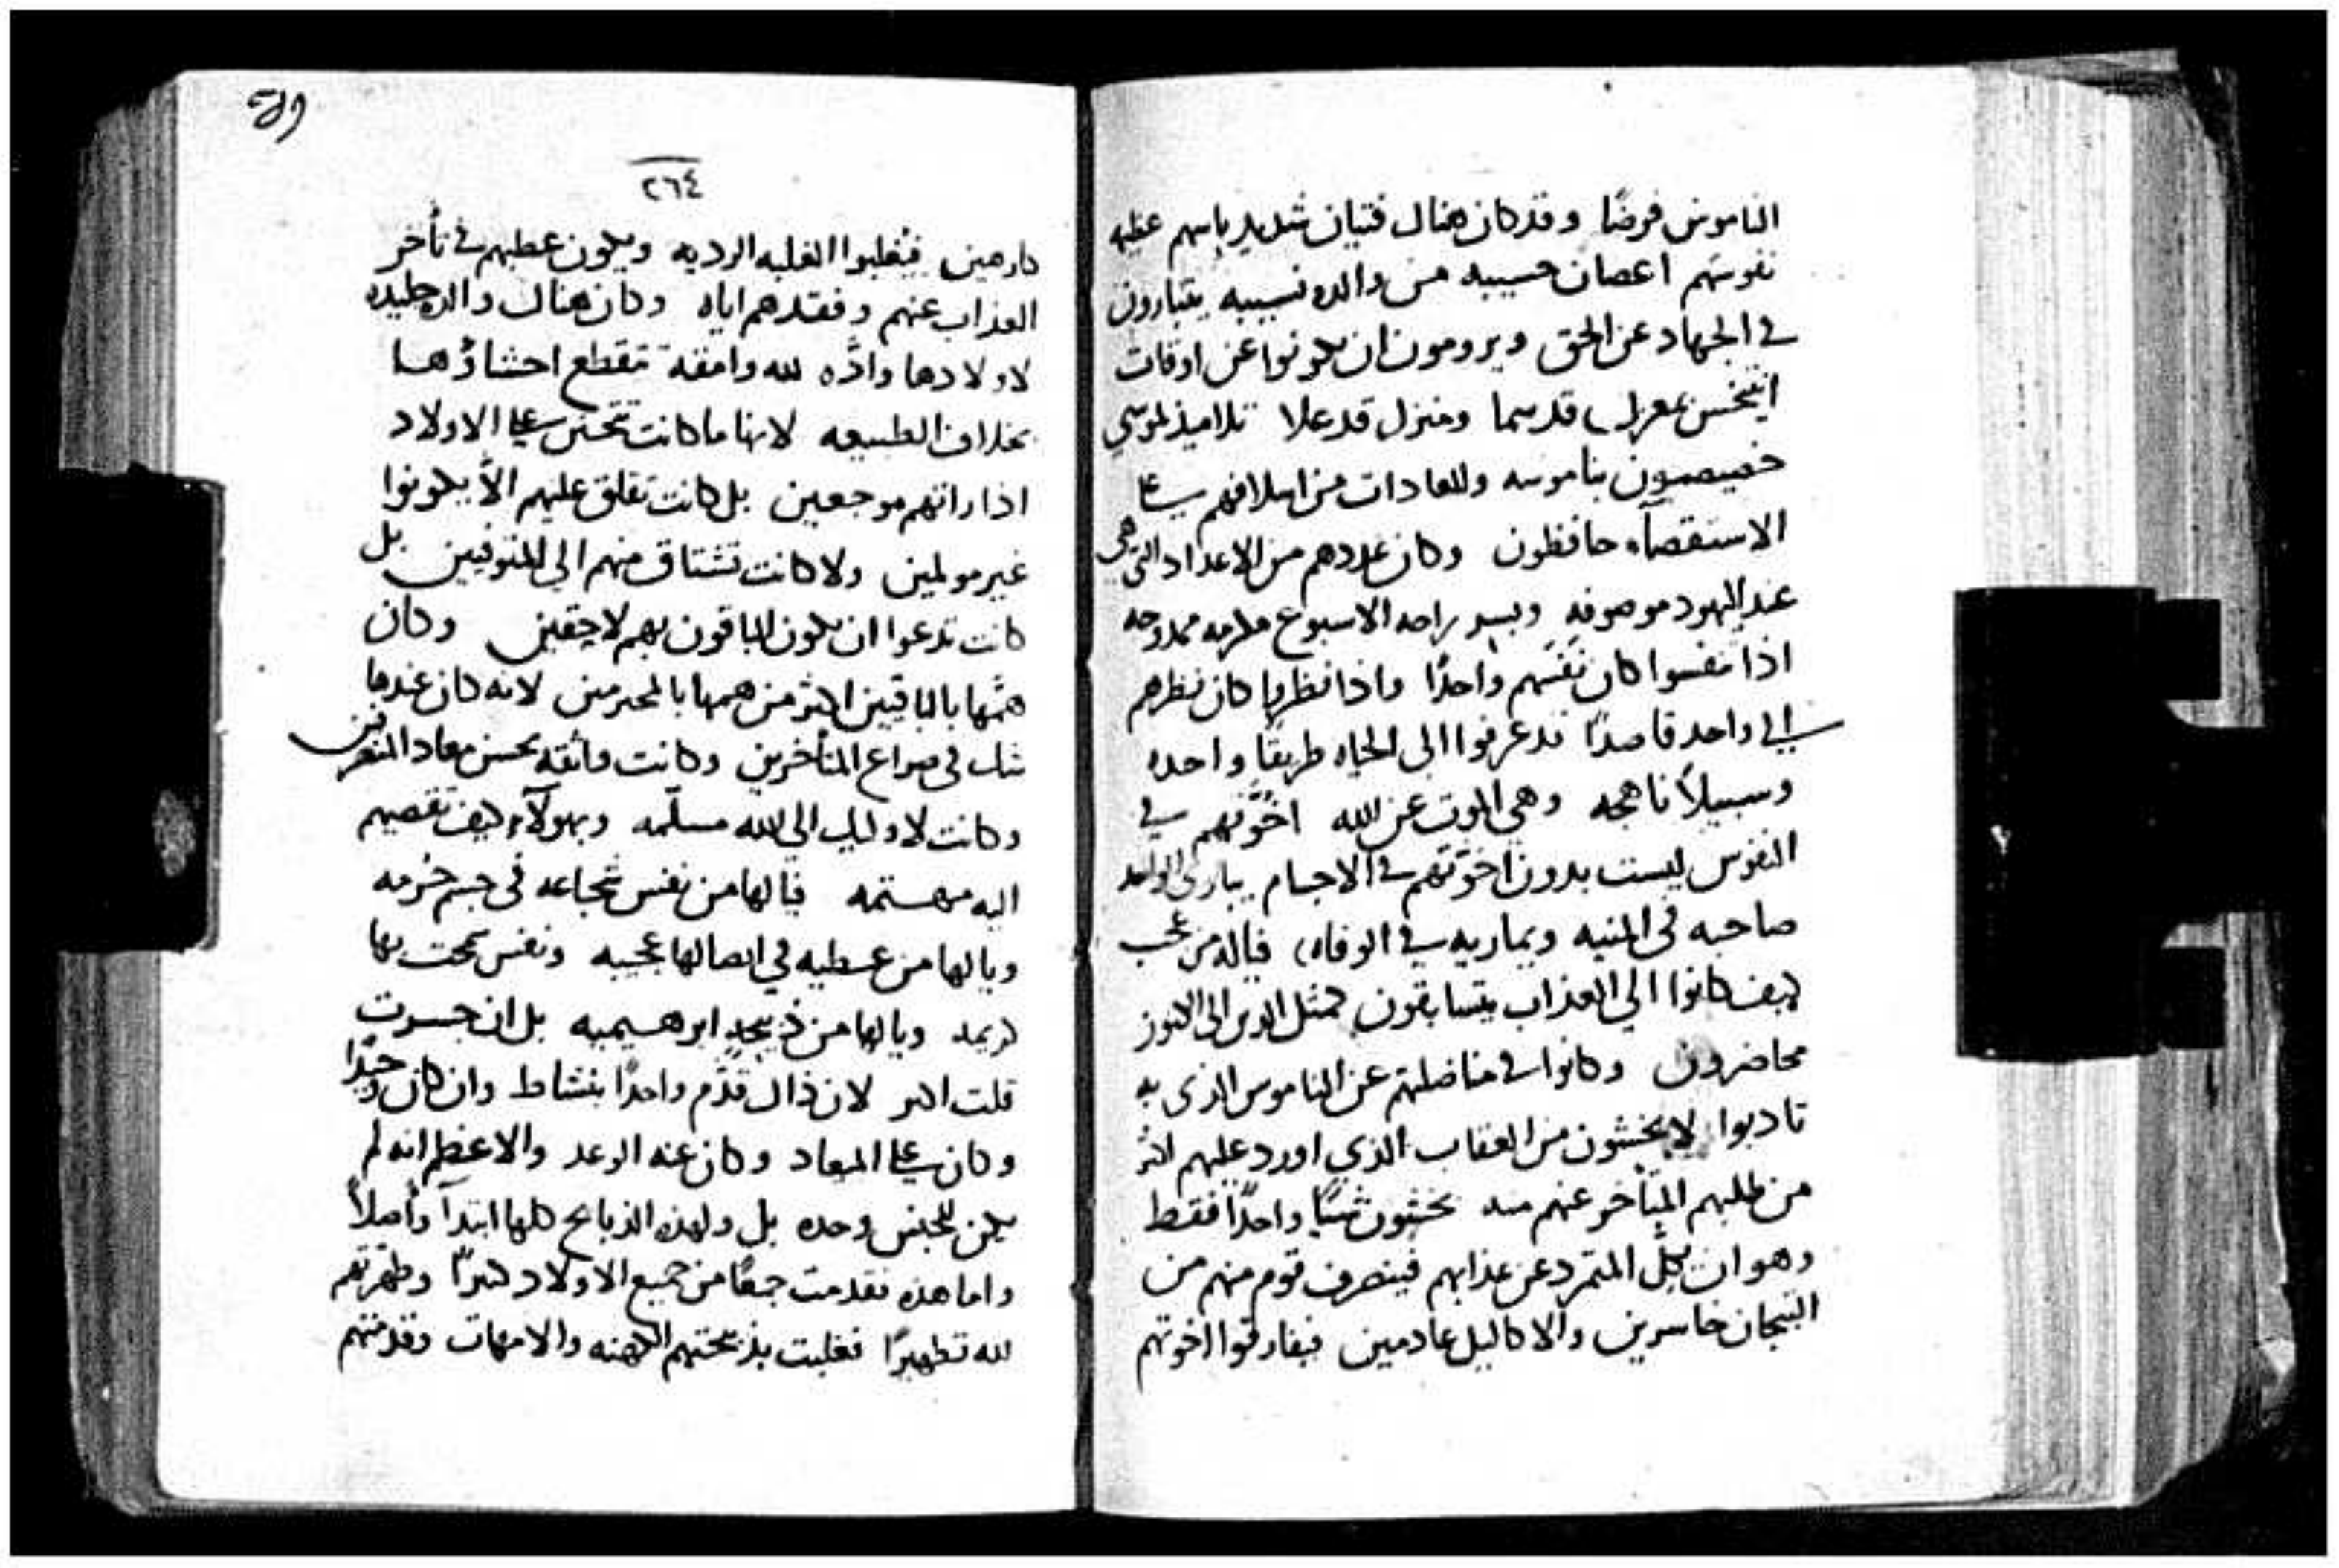 الناموس فرضًا وقد كان هنال فتيان شديد باسهم عظيمه
نفوسهم اغصان حسيبه من والده نسيبه يتبارون
في الجهاد عن الحق ويرومون ان يكونوا عن اوقات
قد سما ومنزل قد علا تلاميذ لموسي
خصيصيون بناموسه وللعادات من اسلافهم علي
الاستقصآء حافظون وكان عددهم من الاعداد التي هي
عند اليهود موصوفه راحه الاسبوع مكرمه ممدوحه
اذا تنفسوا كان نفسهم واحدًا واذا نظروا كان نظرهم
الي واحد قاصدًا قد عرفوا الى الحياه طريقًا واحده
وسبيلاً ناهجه وهي الموت عن الله اخوّتهم في
النفوس ليست بدون اخوّتهم في الاجسام يباري الواحد
صاحبه في المنيه ويماريه في الوفاه فياله من عجب
كيف كانوا الي العذاب يتسابقون كمثل الذين الى الكنوز
محاضرون وكانوا في مناضلتهم عن الناموس الذي به
تادبوا لا يخشون من العقاب الذي اورد عليهم اكثر
من طلبهم المتأخر عنهم منه يخشون شيًا واحدًا فقط
وهو ان يكلّ المتمرد عن عذابهم فينصرف قوم منهم من
التيجان خاسرين والاكاليل عادمين فيفارقوا اخوتهم
٢٦٤
كارهين فيُغلبوا الغلبه الرديه ويكون عطبهم في تأخر
العذاب عنهم وفقدهم اياه وكان هناك والده جليده
لاولادها وادّه لله وامقة تقطع احشاؤها
بخلاف الطبيعه لانها ما كانت تحتن علي الاولاد
اذا راتهم موجعين بل كانت تقلق عليهم الاّ يكونوا
غير مولمين ولا كانت تشتاق منهم الي المتوفيين بل
كانت تدعوا ان يكون الباقون بهم لاحقين وكان
همّها بالباقين اكثر من همها بالمخترمين لانه كان عندها
شك في صراع المتأخرين وكانت واثقه بحسن معاد المنصرفين
وكانت لاوليك الي الله مسلّمه وبهولآء كيف تقصيهم
اليه مهتمه فيا لها من نفس شجاعه في جسم حُرمه
ويا لها من عطيه في ايصالها عجيبه ونفس سمحت بها
كريمه ويا لها من ذبيحةٍ ابرهيميه بل ان جسرت
قلت اكبر لان ذاك قدّم واحدًا بنشاط وان كان وحيدًا
وكان علي المعاد وكان عنه الوعد والاعظم انه لم
يكن للجنس وحده بل ولهذه الذبايح كلها ابتدآ واصلاً
واما هذه فقدمت جمعًا من جميع الاولاد كبيرًا وطهرتهم
لله تطهيرًا فغلبت بذبيحتهم الكهنه والامهات وقدمتهم